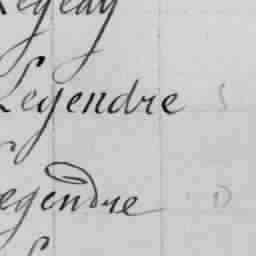 Legeay
Legendre
Legendre